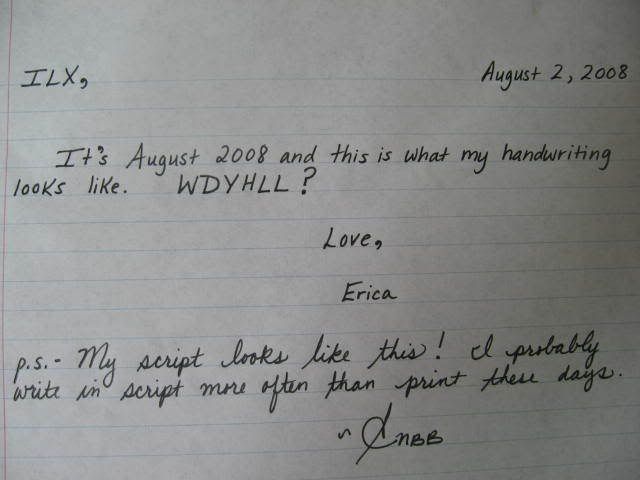 ILX, August 2, 2008
It's August 2008 and this is what my handwriting
looks like. WDYHLL?
Love,
Erica
p.s.- My script looks like this! I probably
write in script more often than print these days.